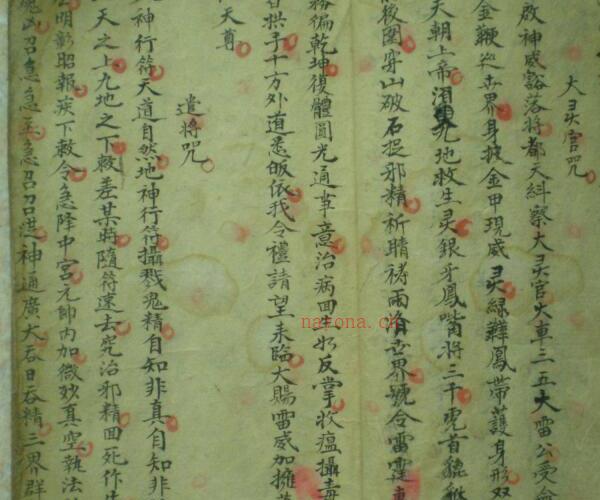 大灵官咒
啟神威豁落將都天糾察大灵官火車三五大雷公受
金鞭巡世界身披金甲現威灵綠鞾鳳帶護身形双
天朝上帝 九地救生灵銀牙鳳嘴將三千虎首貔貅
後圍穿山破石捉邪精祈晴祷雨 世界號令雷霆
務徧乾坤復體圓光通事意治病回生如反掌收瘟攝毒
拱手十方外道悉皈依我令禮請望来臨大賜雷威加擁
天尊
遣將咒
神行符天道自然地神行符攝戮鬼精自知非真自知非
天之上九地之下敕差某將隨符速去究治邪精回死作生
明彰昭報疾下敕令急降中宮元帥内加微妙真空執法
凶召急急至急召召進神通廣大吞日吞精三界群
narona.ck